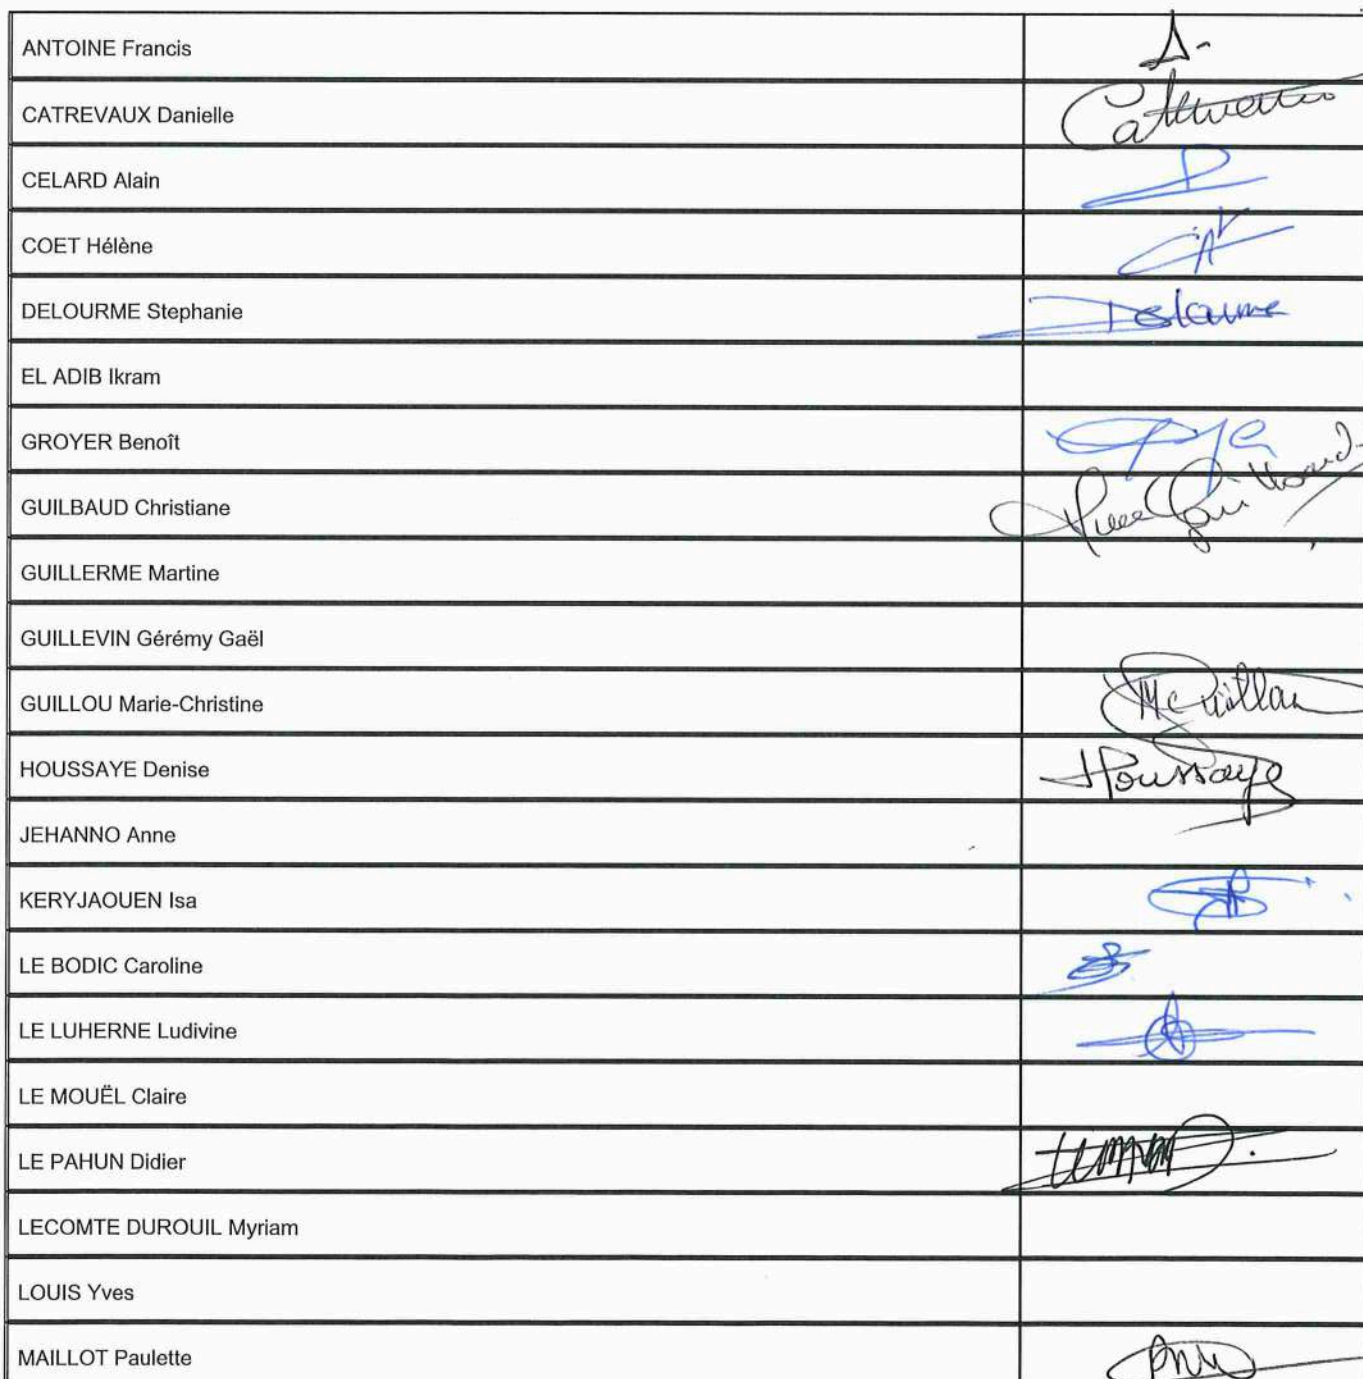 ANTOINE Francis
CATREVAUX Danielle
CELARD Alain
COET Hélène
DELOURME Stephanie
Delourme
EL ADIB Ikram
GROYER Benoît
GUILBAUD Christiane
GUILLERME Martine
GUILLEVIN Gérémy Gaël
GUILLOU Marie-Christine
HOUSSAYE Denise
Houssaye
JEHANNO Anne
KERYJAOUEN Isa
LE BODIC Caroline
LE LUHERNE Ludivine
LE MOUËL Claire
LE PAHUN Didier
LECOMTE DUROUIL Myriam
LOUIS Yves
MAILLOT Paulette